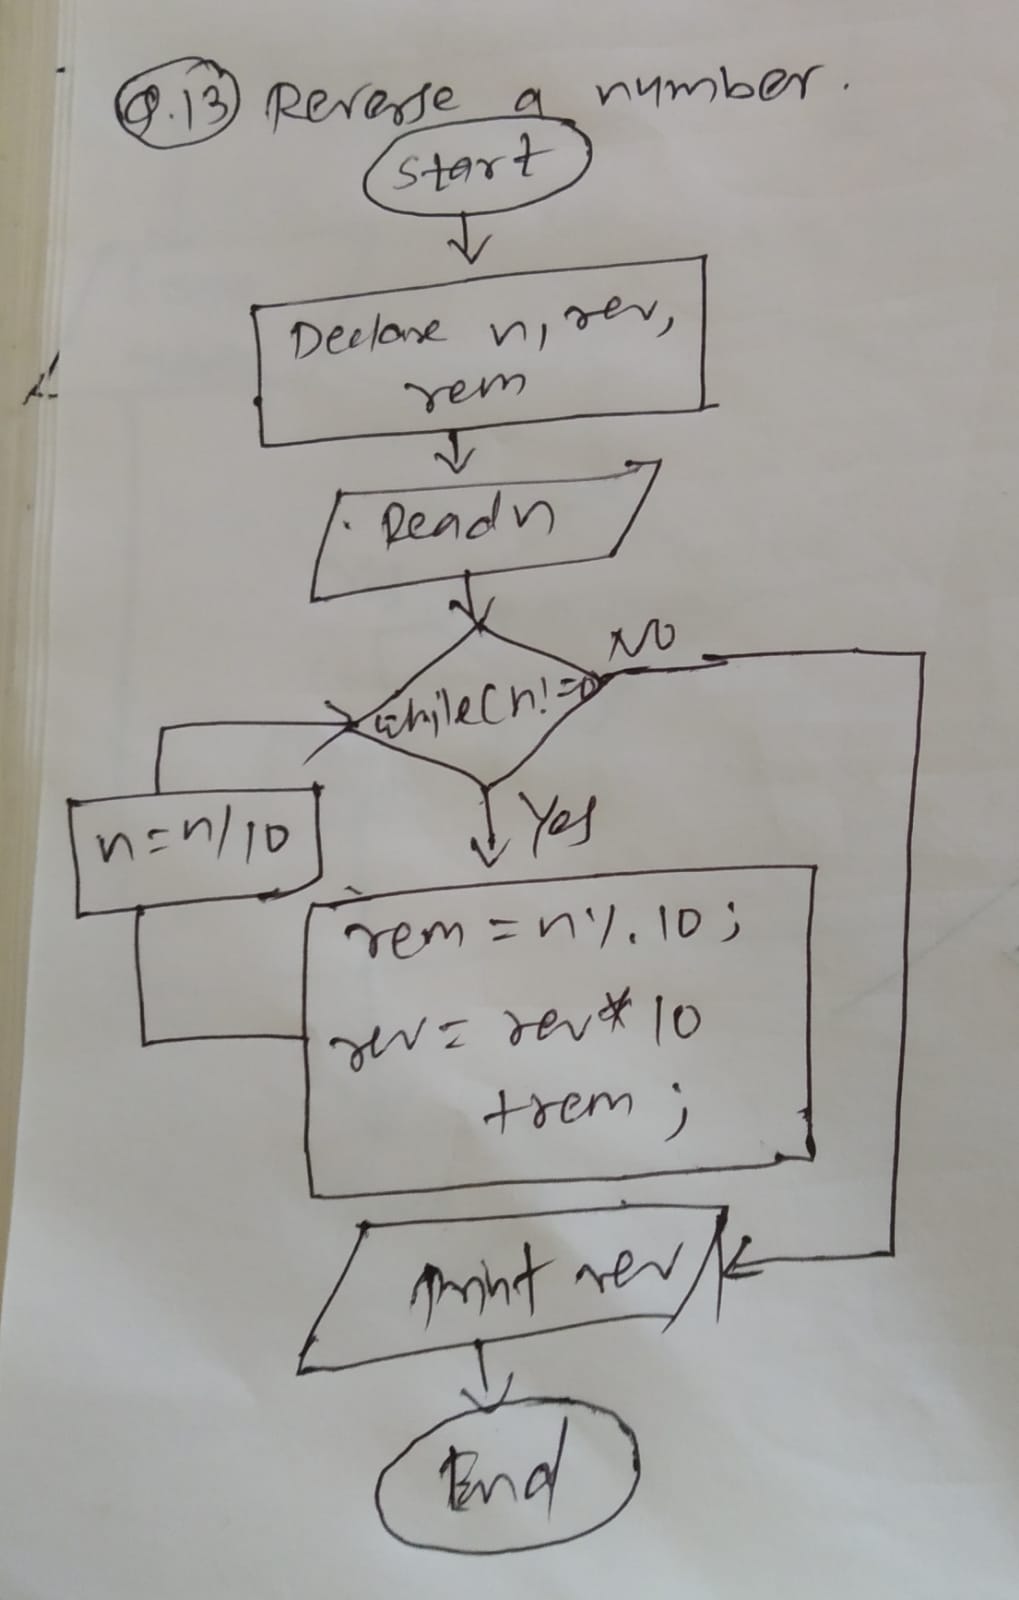 Q.13 Reverse a number.
Start
Declare n, rev,
rem
Read n
while(n!=0
NO
Yes
n=n/10
rem = n%10;
rev = rev*10
+rem;
print rev
End